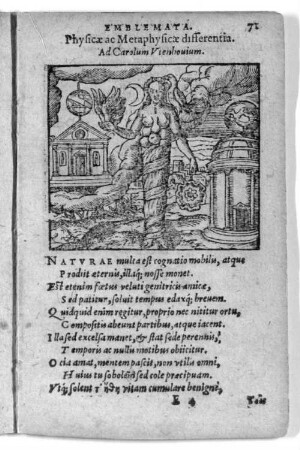 EMBLEMATA. 71
Physicæ ac Metaphysicæ differentia.
Ad Carolum Vtenhouium.
NATVRAE multa est cognatio mobilis, atque
Prodiit æternis, illaq; nosse monet.
Est etenim fœtus veluti genitricis amicæ,
Sed patitur, soluit tempus edaxq; breuem.
Quidquid enim regitur, proprio nec nititur ortu,
Compositis abeunt partibus, atque iacent.
Illa sed excelsa manet, & stat sede perennis,
Temporis ac nullis motibus obiicitur.
Ocia amat, mentem pascit, non vella omni,
Huius tu sobolem sed cole præcipuam.
Vtq; solent vitam cumulare benigni,
E